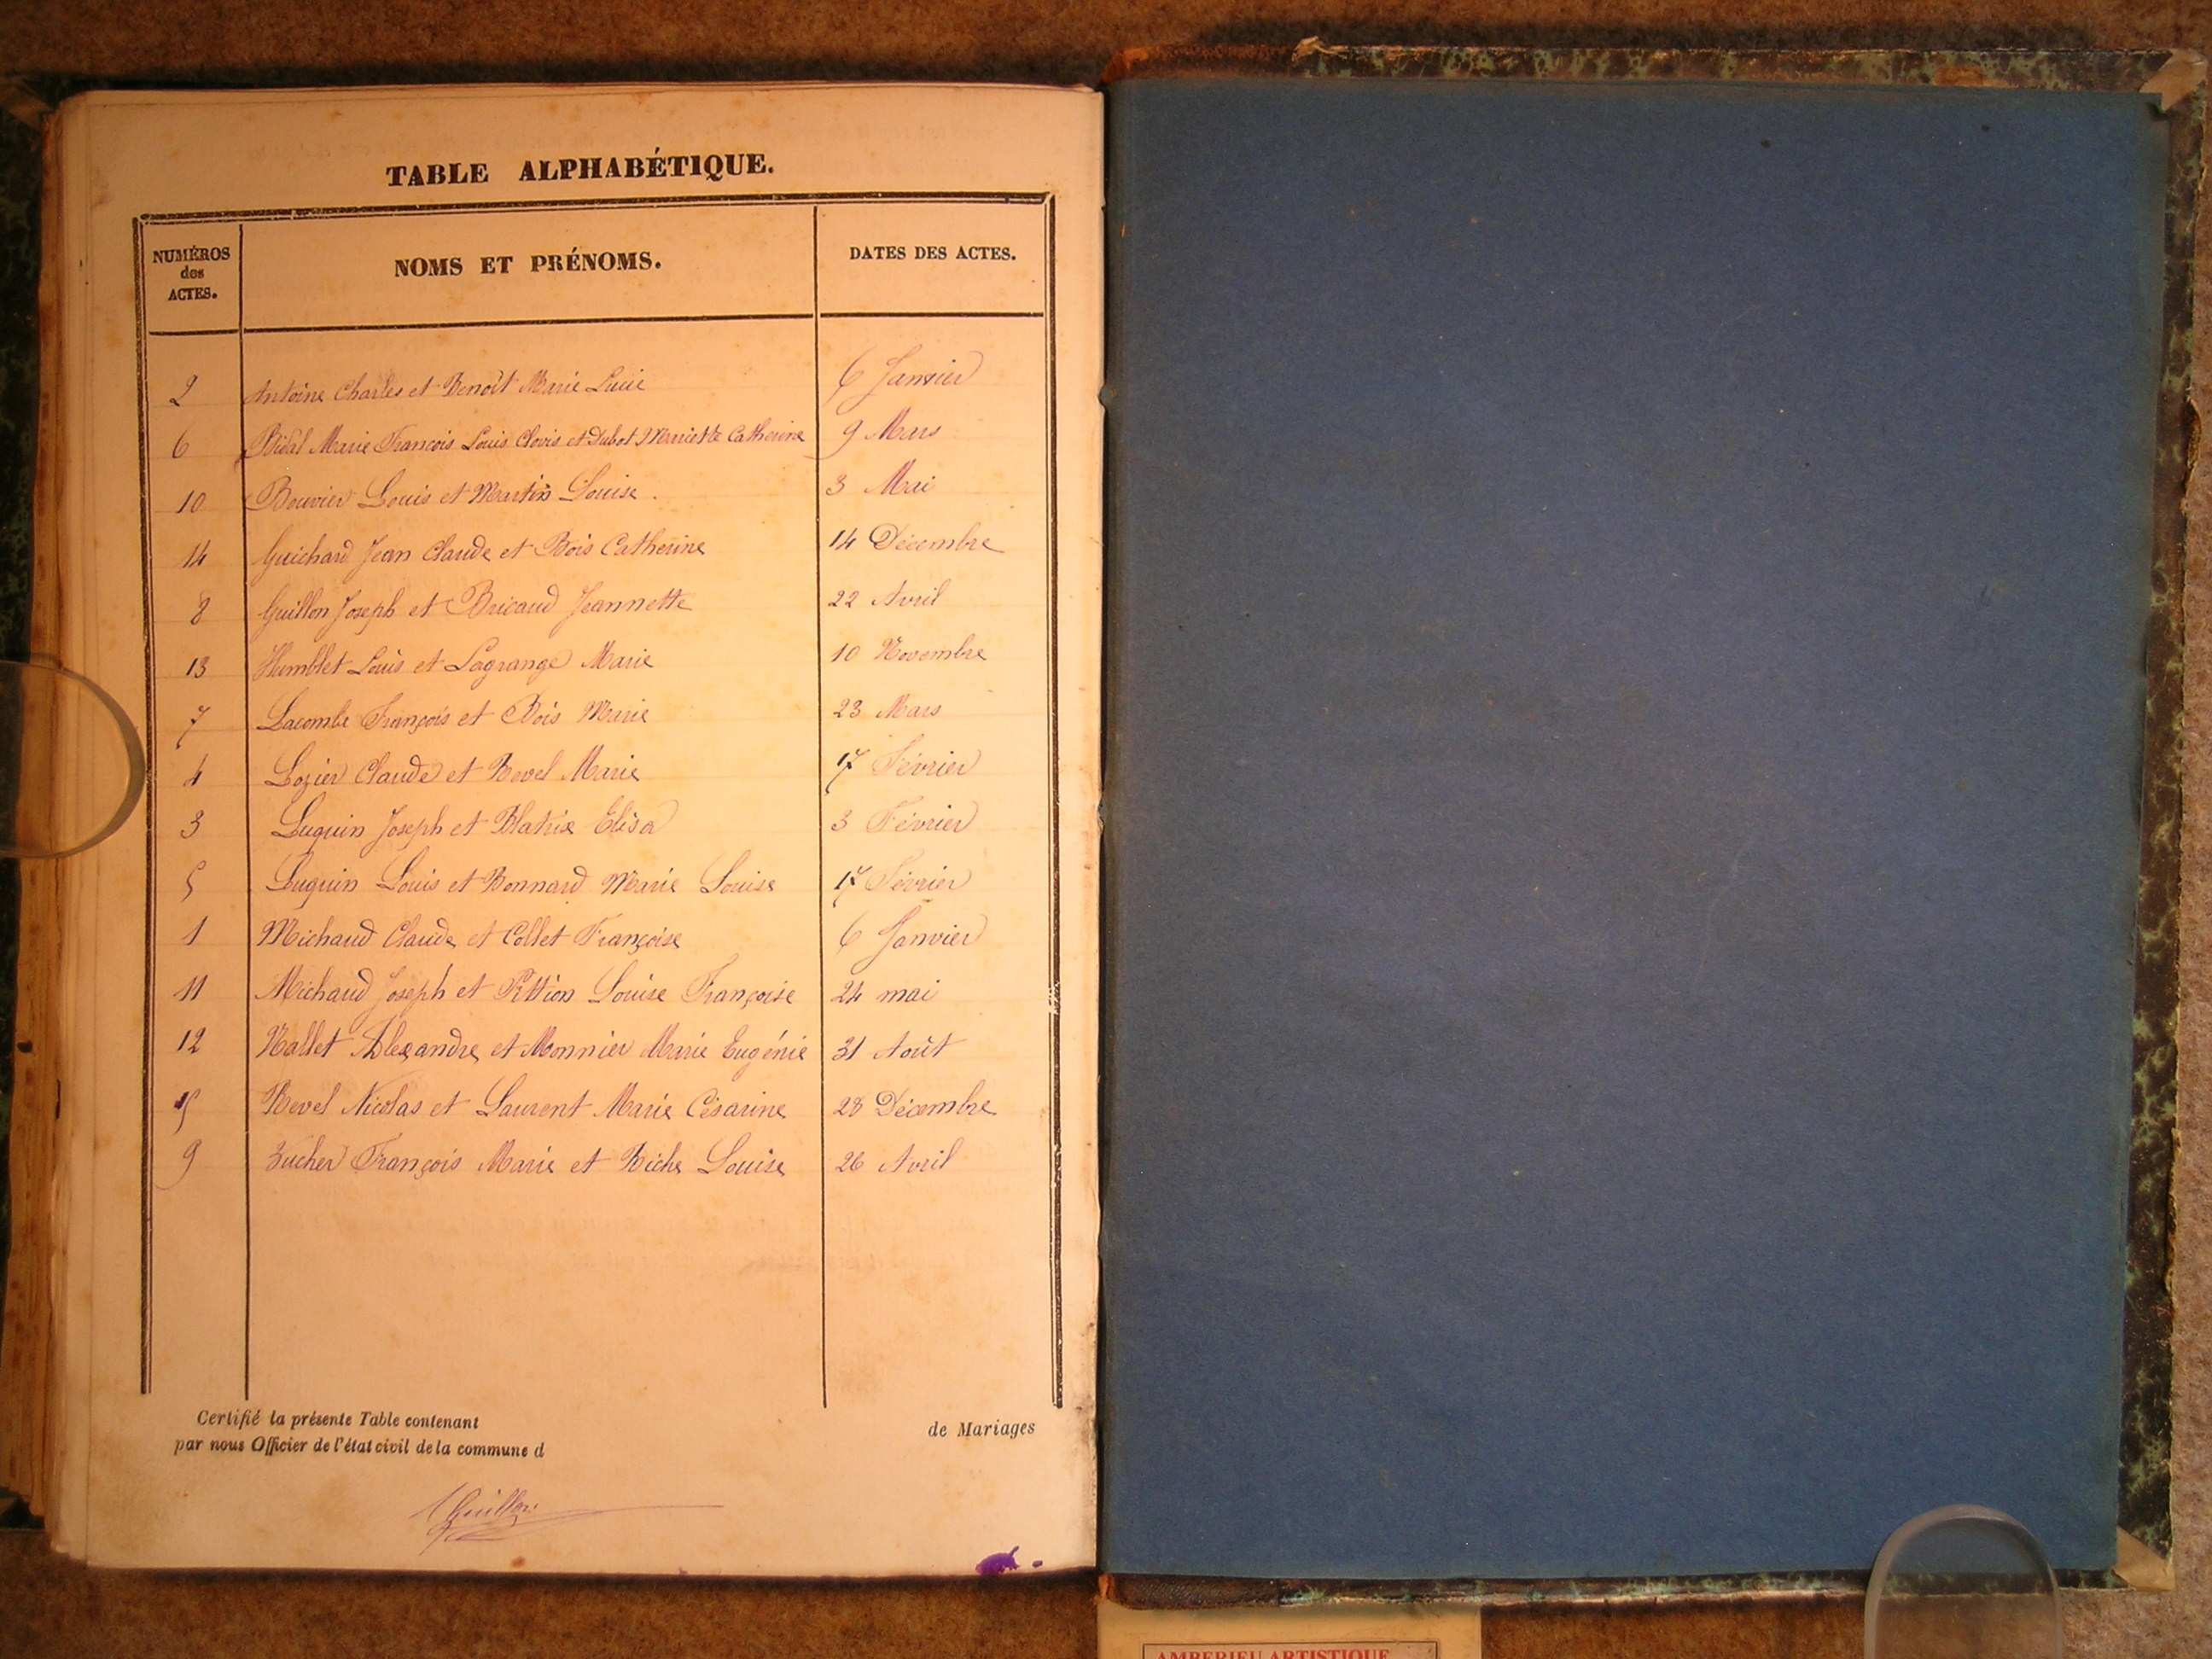 TABLE ALPHABÉTIQUE.
NUMÉROS des ACTES. NOMS ET PRÉNOMS. DATES DES ACTES.
2 Antoine Charles et Benoît Marie Lucie 6 Janvier
6 Bidal Marie François Louis Clovis et Dubot Mariette Catherine 9 Mars
10 Bouvier Louis et Martin Louise. 3 Mai
14 Guichard Jean Claude et Bois Catherine 14 Décembre
8 Guillon Joseph et Bricaud Jeannette 22 Avril
13 Humblet Louis et Lagrange Marie 10 Novembre
7 Lacombe François et Bois Marie 23 Mars
4 Lozier Claude et Revel Marie 17 Février
3 Luquin Joseph et Blatrix Elisa 3 Février
5 Luquin Louis et Bonnard Marie Louise 17 Février
1 Michaud Claude et Collet Françoise 6 Janvier
11 Michaud Joseph et Pittion Louise Françoise 24 mai
12 Nallet Alexandre et Monnier Marie Eugénie 31 Août
15 Revel Nicolas et Laurent Marie Césarine 28 Décembre
9 Zucher François Marie et Riche Louise 26 Avril
Certifié la présente Table contenant de Mariages
par nous Officier de l'état civil de la commune d
AMBERIEU ARTISTIQUE